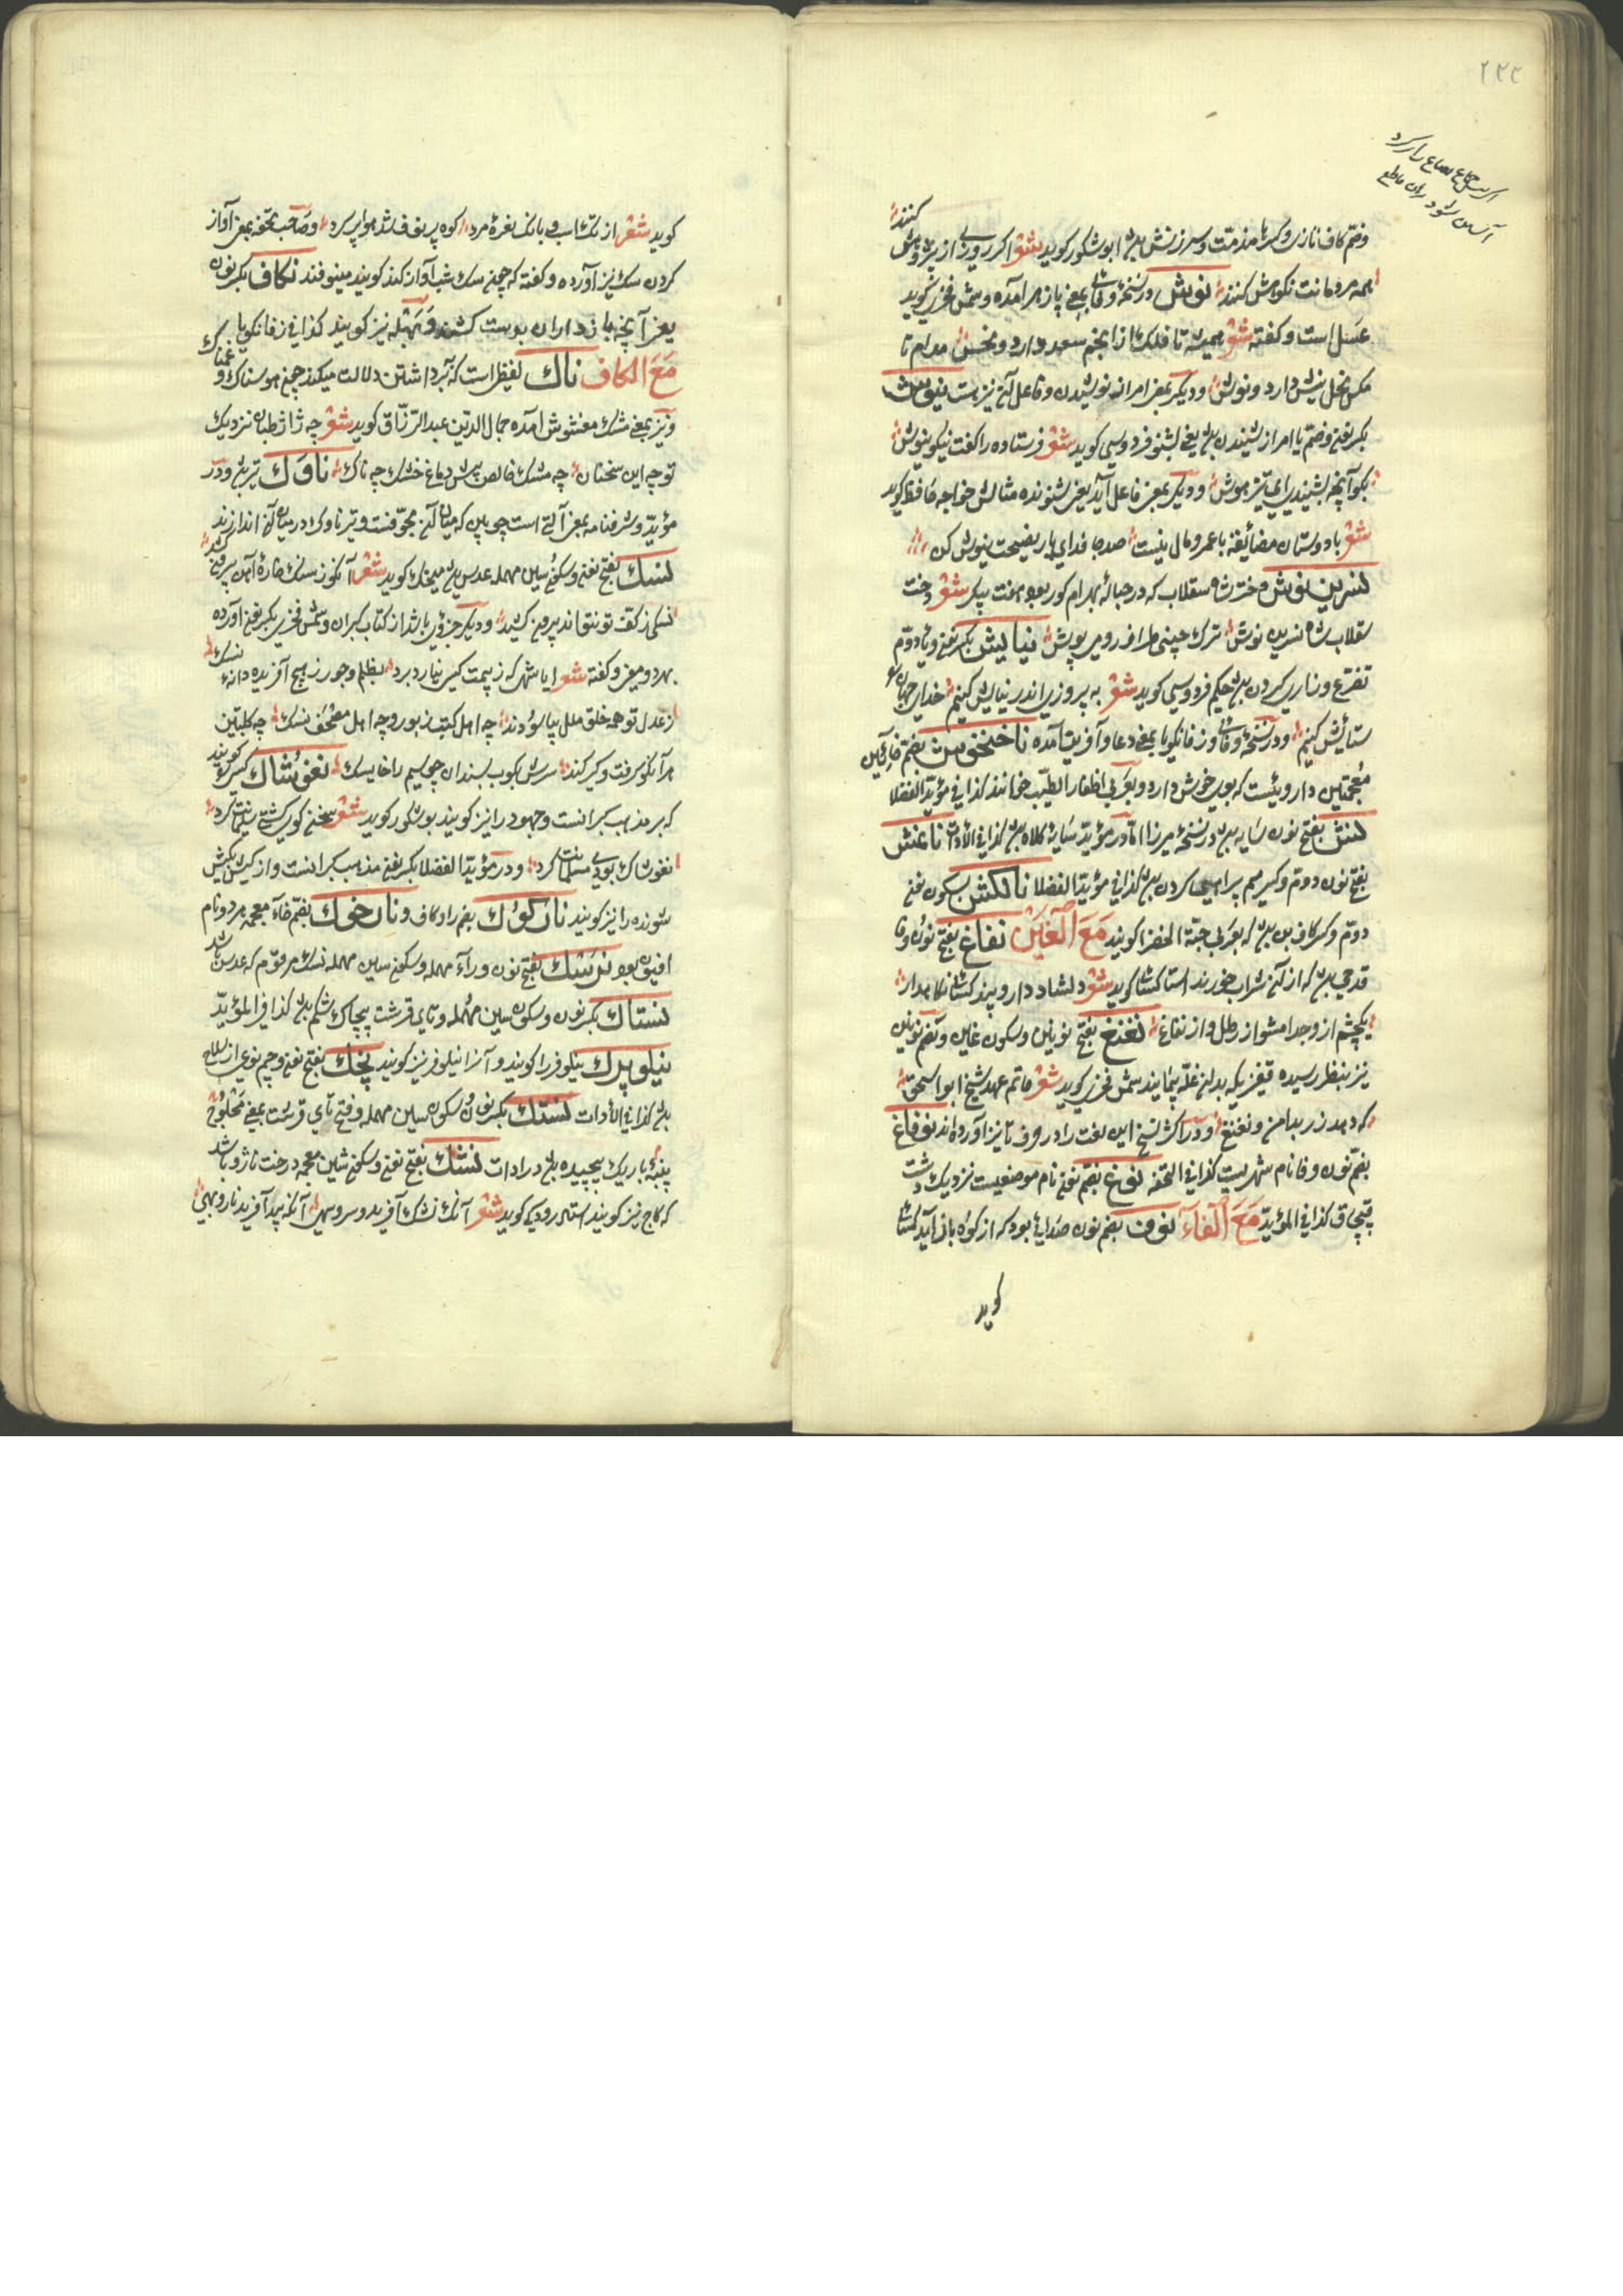 ۲۳۳
وضم کاف تازی وکسرها مذمت وسرزنش بود ابوشکور کوید شعر اکر روزی از تو پژوهش کنند
همه مردمانت نکوهش کنند نوش در نسخه وفائی بمعنی پازهر آمده وشمس فخری کوید
عسل است وکفته شعر همیشه تا فلک از انجم سعد دارد ونحس مدام تا
مکس نحل نیش دارد ونوش ودیکر بمعنی امر از نوشیدن وفاعل آن نیز هست نیوش
بکسر نون وضم یا امر از شنیدن بود یعنی بشنو فردوسی کوید شعر فرستاده را کفت نیکو نیوش
بکو آنچه بشنیدی ای تیز هوش ودیکر بمعنی فاعل آید یعنی شنونده مثالش خواجه حافظ کوید
شعر با دوستان مضایقه با عمر ومال نیست صد جان فدای یار نصیحت نیوش کن
نسرین نوش دختر شاه سقلاب که در حباله بهرام کور بود هفت پیکر شعر دخت
سقلاب شاه نسرین نوش ترک چینی طراز رومی پوش نیایش بکسر نون ویاء دوم
تضرع وزاری کردن بود حکیم فردوسی کوید شعر به پیروزی اندر نیایش کنیم خدای جهان
ستایش کنیم ودر نسخه وفائی وزفانکویا بمعنی دعا وآفرین آمده ناخنخوش بضم خاءین
معجمتین داروئیست که بوی خوش دارد وبعربی اظفار الطیب خوانند کذا فی مؤید الفضلا
نش بفتح نون سایه بود در نسخه میرزا اما در مؤید سایه کلاه بود کذا فی الادات
بفتح نون دوم وکسر میم کردن بود کذا فی مؤید الفضلا بسکون نون
دوم وکسر کاف بن بود که بعربی حبة الخضرا کویند مع الغین نفاغ بفتح نون وفا
قدحی بود که از آن شراب خورند استاد کسائی کوید شعر دلشاد دار وپند کسائی نکاهدار
یکچشم از وجدا مشو از رطل واز نفاغ نغنغ بفتح نونین وسکون غین وبضم نونین
نیز بنظر رسیده قفیزی که بدان غله پیمایند شمس فخری کوید شعر حاتم عهد شیخ ابو اسحق
که دهد زر بدامن ونغنغ ودر اکثر نسخ این لغت را در حرف تا نیز آورده اند نوفاغ
بضم نون وفا نام شهریست کذا فی التحفه نوغ بضم نون نام موضعیست نزدیک دشت
قبچاق کذا فی المؤید مع الفاء نوف بضم نون صدائی بود که از کوه باز آید
کوید
کوید شعر از تک اسب وبانک نعره مرد کوه پر نوف شد هوا پر کرد وصاحب تحفه بمعنی آواز
کردن سک نیز آورده وکفته که چون سک شب آواز کند کویند مینوفد نکاف بکسر نون
یعنی آنچه بازداران بوست کشند وبهله نیز کویند کذا فی زفانکویا
مع الکاف ناک لفظی است که بر داشتن دلالت میکند چون هوسناک وغمناک
ونیز بمعنی مشک مغشوش آمده جمال الدین عبد الرزاق کوید شعر چه ژاژ طیان نزدیک
تو چه این سخنان چه مشک خالص پیش دماغ خشک چه ناک ناوک تیر بود ودر
مؤید وشرفنامه بمعنی آلتی است چوبین که میان آن مجوفست وتیر ناوک در میان آن اندازند
نسک بفتح نون وسکون سین مهمله عدس بود منجیک کوید شعر
نسکی ز کفت تو نتواند بیرون کشید ودیکر جزوی باشد از کتاب کبران وشمس فخری بکسر نون آورده
بهر دو معنی وکفته شعر ایا شهی که ز بیمت کس نیارد برد بظلم وجور ز هیچ آفریده دانه نسک
ز عدل تو همه خلق ملل بیاسودند چه اهل کتب زبور وچه اهل مصحف نسک چه کلبتین
هر آنکو کرفت وکیر کند سرش بکوب بسندان چو سیم را خایسک نغوشاک کسی را کویند
که بر مذهب کبرانست وجهود را نیز کویند بوشکور کوید شعر سخن کوی کشتی سلیمانت کرد
نغوشاک بودی مسلمانت کرد ودر مؤید الفضلا بکسر نون مذهب کبرانست واز کیش بکیش
شونده را نیز کویند نارکوک بضم را وکاف ونارخوک بضم خاء معجمه هر دو نام
افیون بود نرسک بفتح نون وراء مهمله وسکون سین مهمله نسک مرقوم که عدس باشد
نستاک بکسر نون وسکون سین مهمله وتای قرشت پیچاک شکم بود کذا فی المؤید
نیلوپرک نیلوفر را کویند وآنرا نیلوفر نیز کویند نچک بفتح نون وجیم نوعی از سلاح
بود کذا فی الادات نستک بکسر نون وسکون سین مهمله وفتح تای قرشت بمعنی محلوج
پنبه باریک پیچیده بود در ادات نشک بفتح نون وسکون شین معجمه درخت ناژو باشد
که کاج نیز کویند استاد رودکی کوید شعر آنک نشک آفرید وسرو سهی آنکه بید آفرید نار وبهی